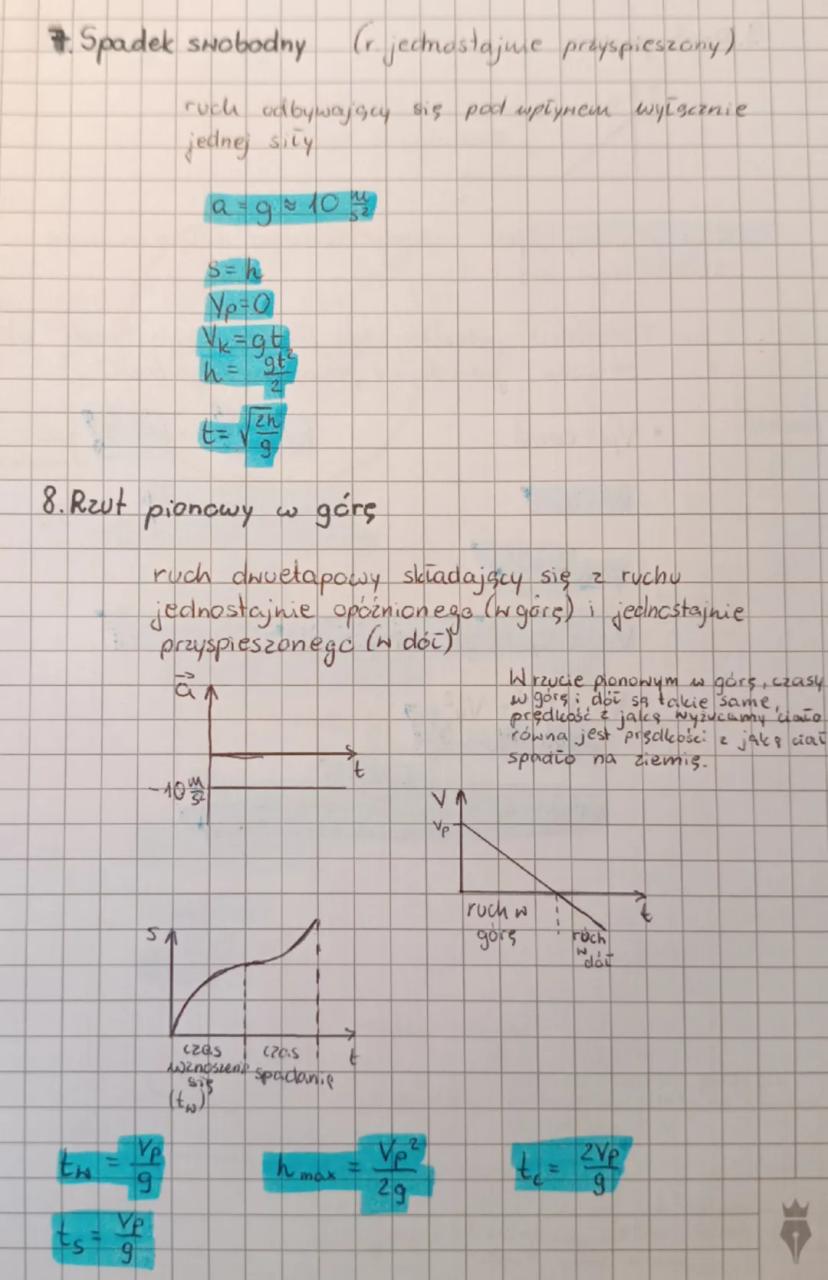 7. Spadek swobodny (r. jednostajnie przyspieszony)
ruch odbywający się pod wpływem wyłącznie
jednej siły
a = g ≈ 10 m/s²
s = h
Vp = 0
Vk = gt
h = gt²/2
t = √(2h/g)
8. Rzut pionowy w górę
ruch dwuetapowy składający się z ruchu
jednostajnie opóźnionego (w górę) i jednostajnie
przyspieszonego (w dół)
W rzucie pionowym w górę, czasy
w górę i dół są takie same,
prędkość z jaką wyrzucamy ciało
równa jest prędkości z jaką ciał
spadło na ziemię.
a
t
-10 m/s²
V
Vp
t
ruch w
górę
ruch
w
dół
s
t
czas
wznoszeni
się
(tw)
czas
spadanie
tw = Vp/g
hmax = Vp²/2g
tc = 2Vp/g
ts = Vp/g